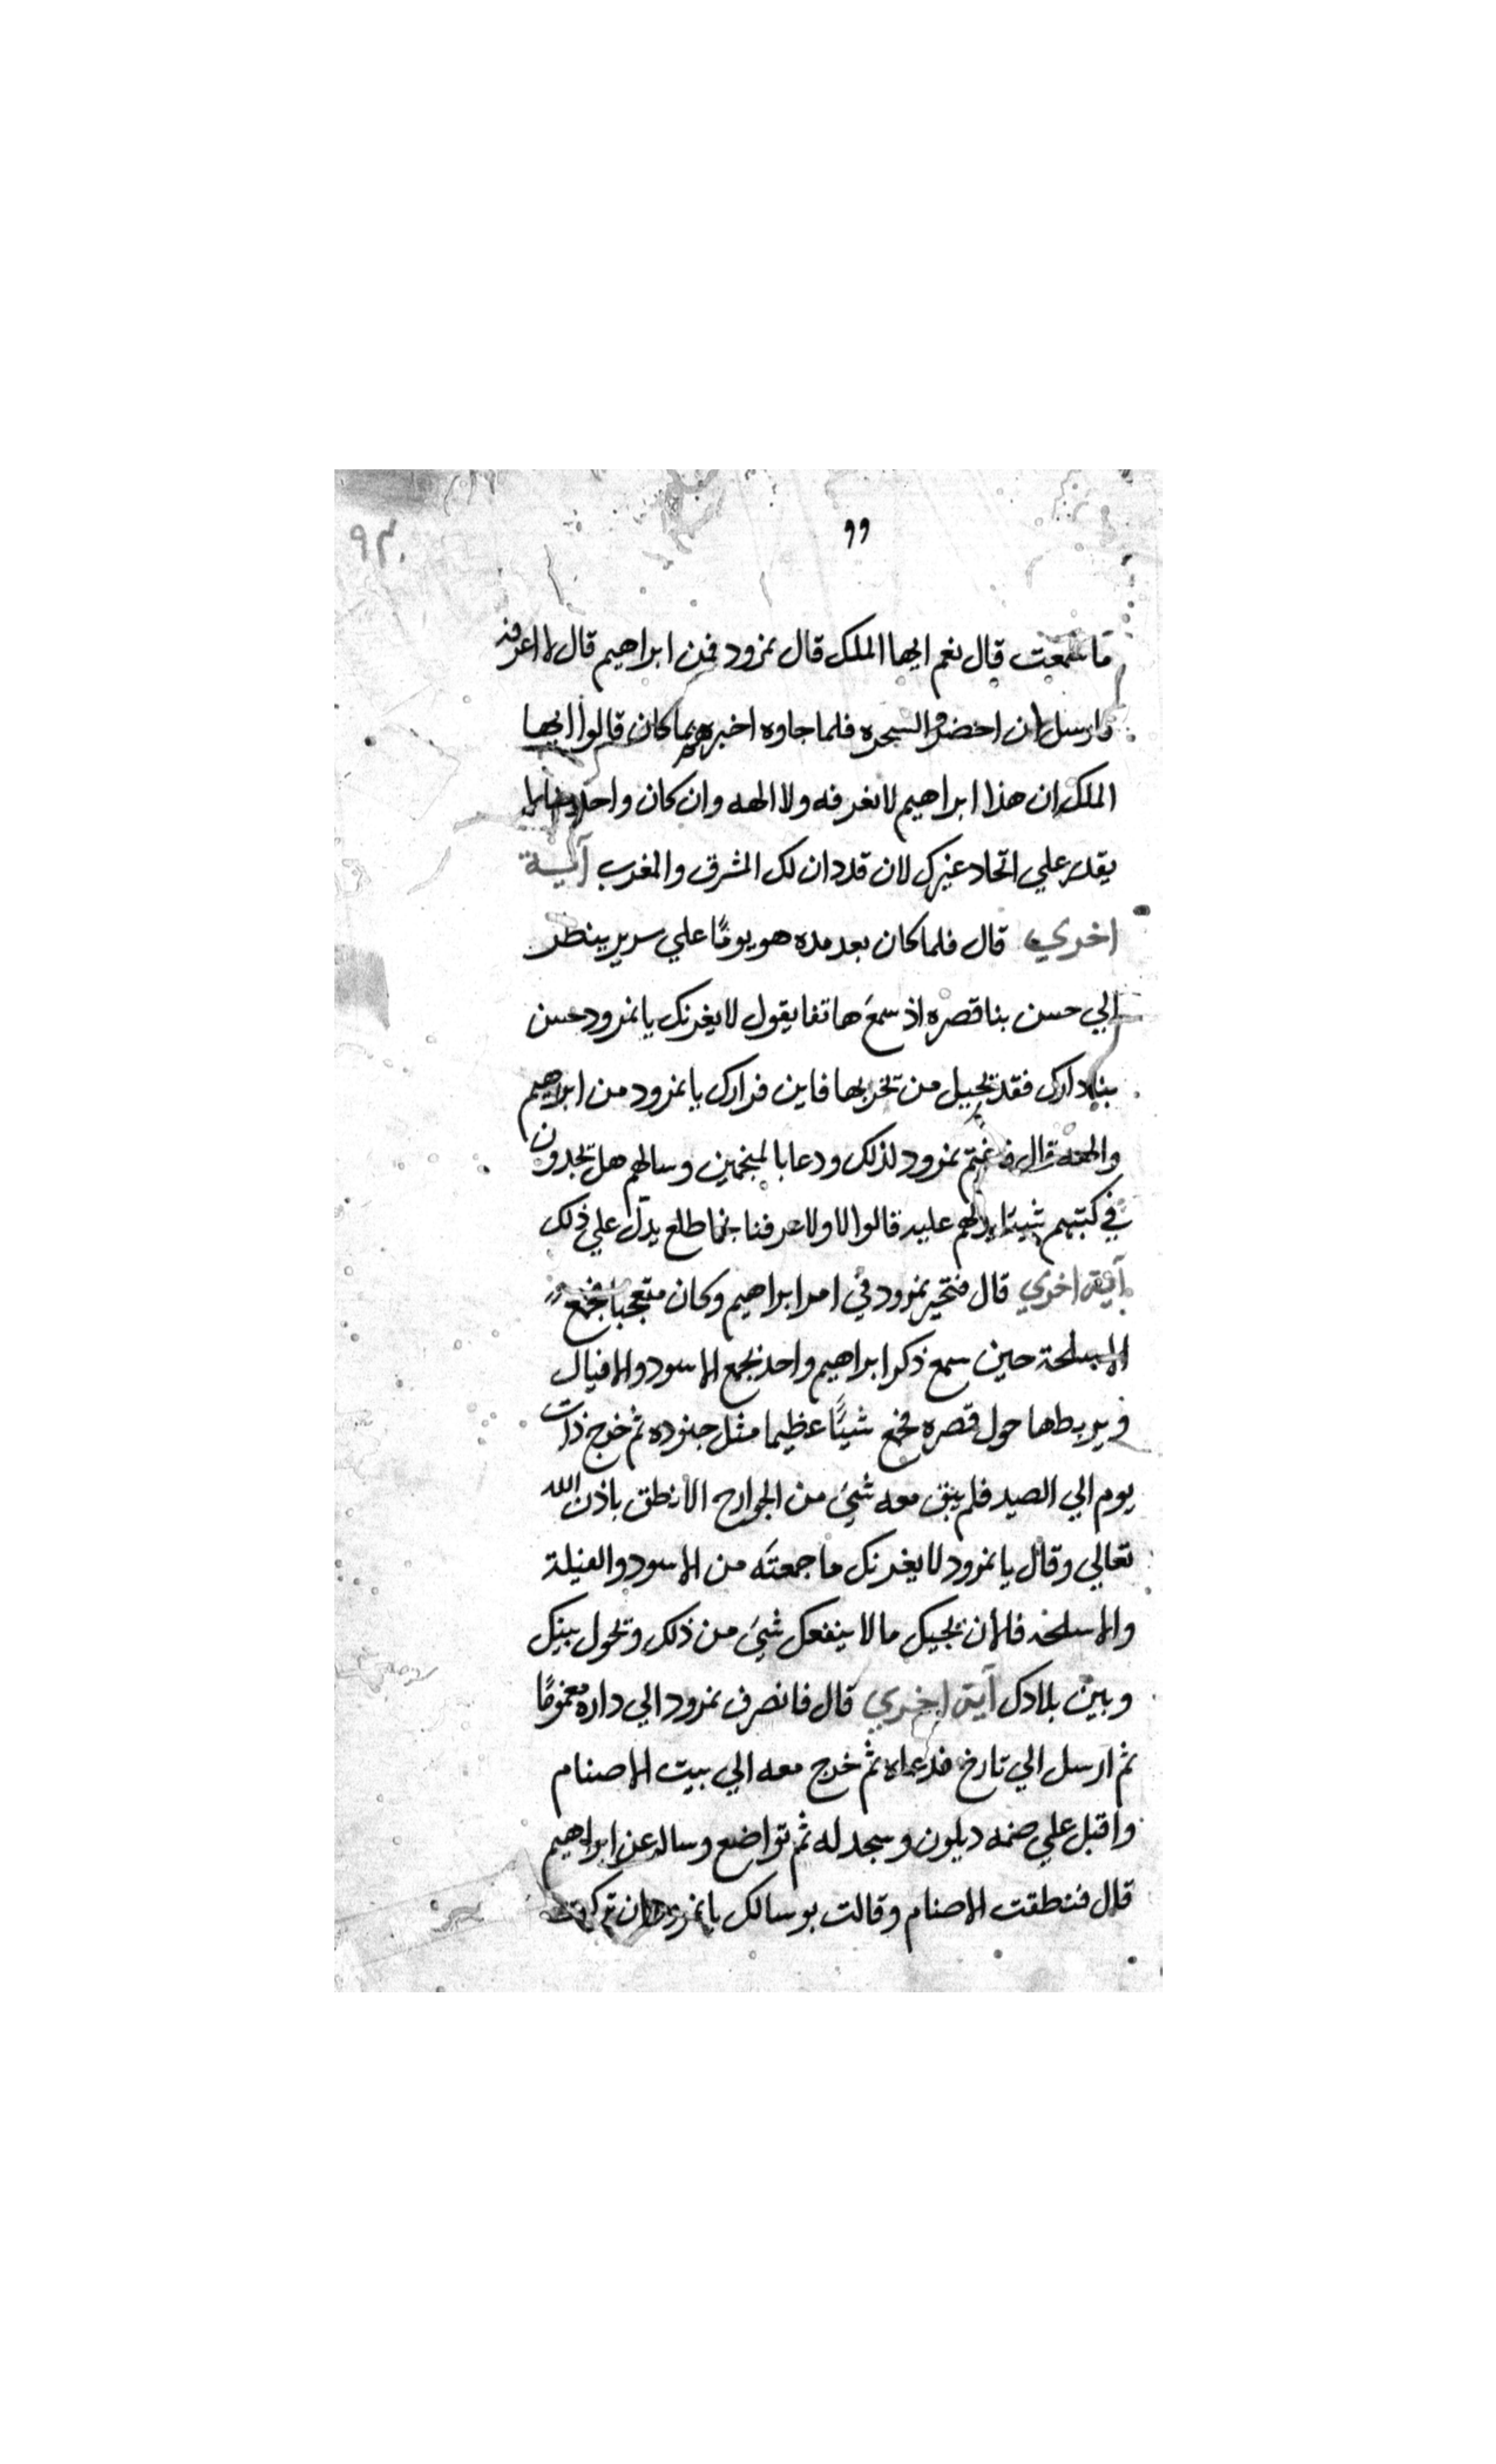 ٩٩
٩٣
ما سمعت قال نعم ايها الملك قال نمرود فمن ابراهيم قال لا اعرفه
وارسل ان احضروا السحره فلما جاوه اخبرهم بما كان قالوا ايها
الملك ان هذا ابراهيم لا نعرفه ولا الهه وان كان واحد
يقدر علي اتحاد غيرك لان قددان لك المشرق والمغرب آية
اخري قال فلما كان بعد مده هو يومًا علي سرير ينظر
الي حسن بنا قصره اذ سمع هاتفا يقول لا يغرنك يا نمرود حسن
بنا دارك فقد يجيك من تخربها فاين فرارك يا نمرود من ابراهيم
والهه قال فغتم نمرود لذلك ودعا بالمنجمين وسالهم هل تجدون
في كتبهم شيئا يدلهم عليه قالوا لا ولا عرفنا نجما طلع يدل علي ذلك
آية اخري قال فتحير نمرود في امر ابراهيم وكان متعجبا
الاسلحة حين سمع ذكر ابراهيم واخذ بجمع الاسود والافيال
ويربطها حول قصره فجمع شيئًا عظيما مثل جنوده ثم خرج ذات
يوم الي الصيد فلم يبق معه شيء من الجوارح الا نطق باذن الله
تعالي وقال يا نمرود لا يغرنك ما جمعته من الاسود والفيلة
والاسلحه فالان يجيك مالا ينفعك شيء من ذلك وتحول بينك
وبين بلادك آية اخري قال فانصرف نمرود الي داره مغمومًا
ثم ارسل الي تارخ فدعاه ثم خرج معه الي بيت الاصنام
واقبل علي صنمه ديلون وسجد له ثم تواضع وساله عن ابراهيم
قال فنطقت الاصنام وقالت بوسا لك يا نمرود ان تركت